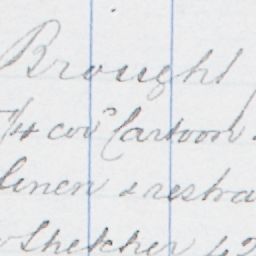 Brought
1/4 cov'd Cartoon
linen & restra
Stretcher 42